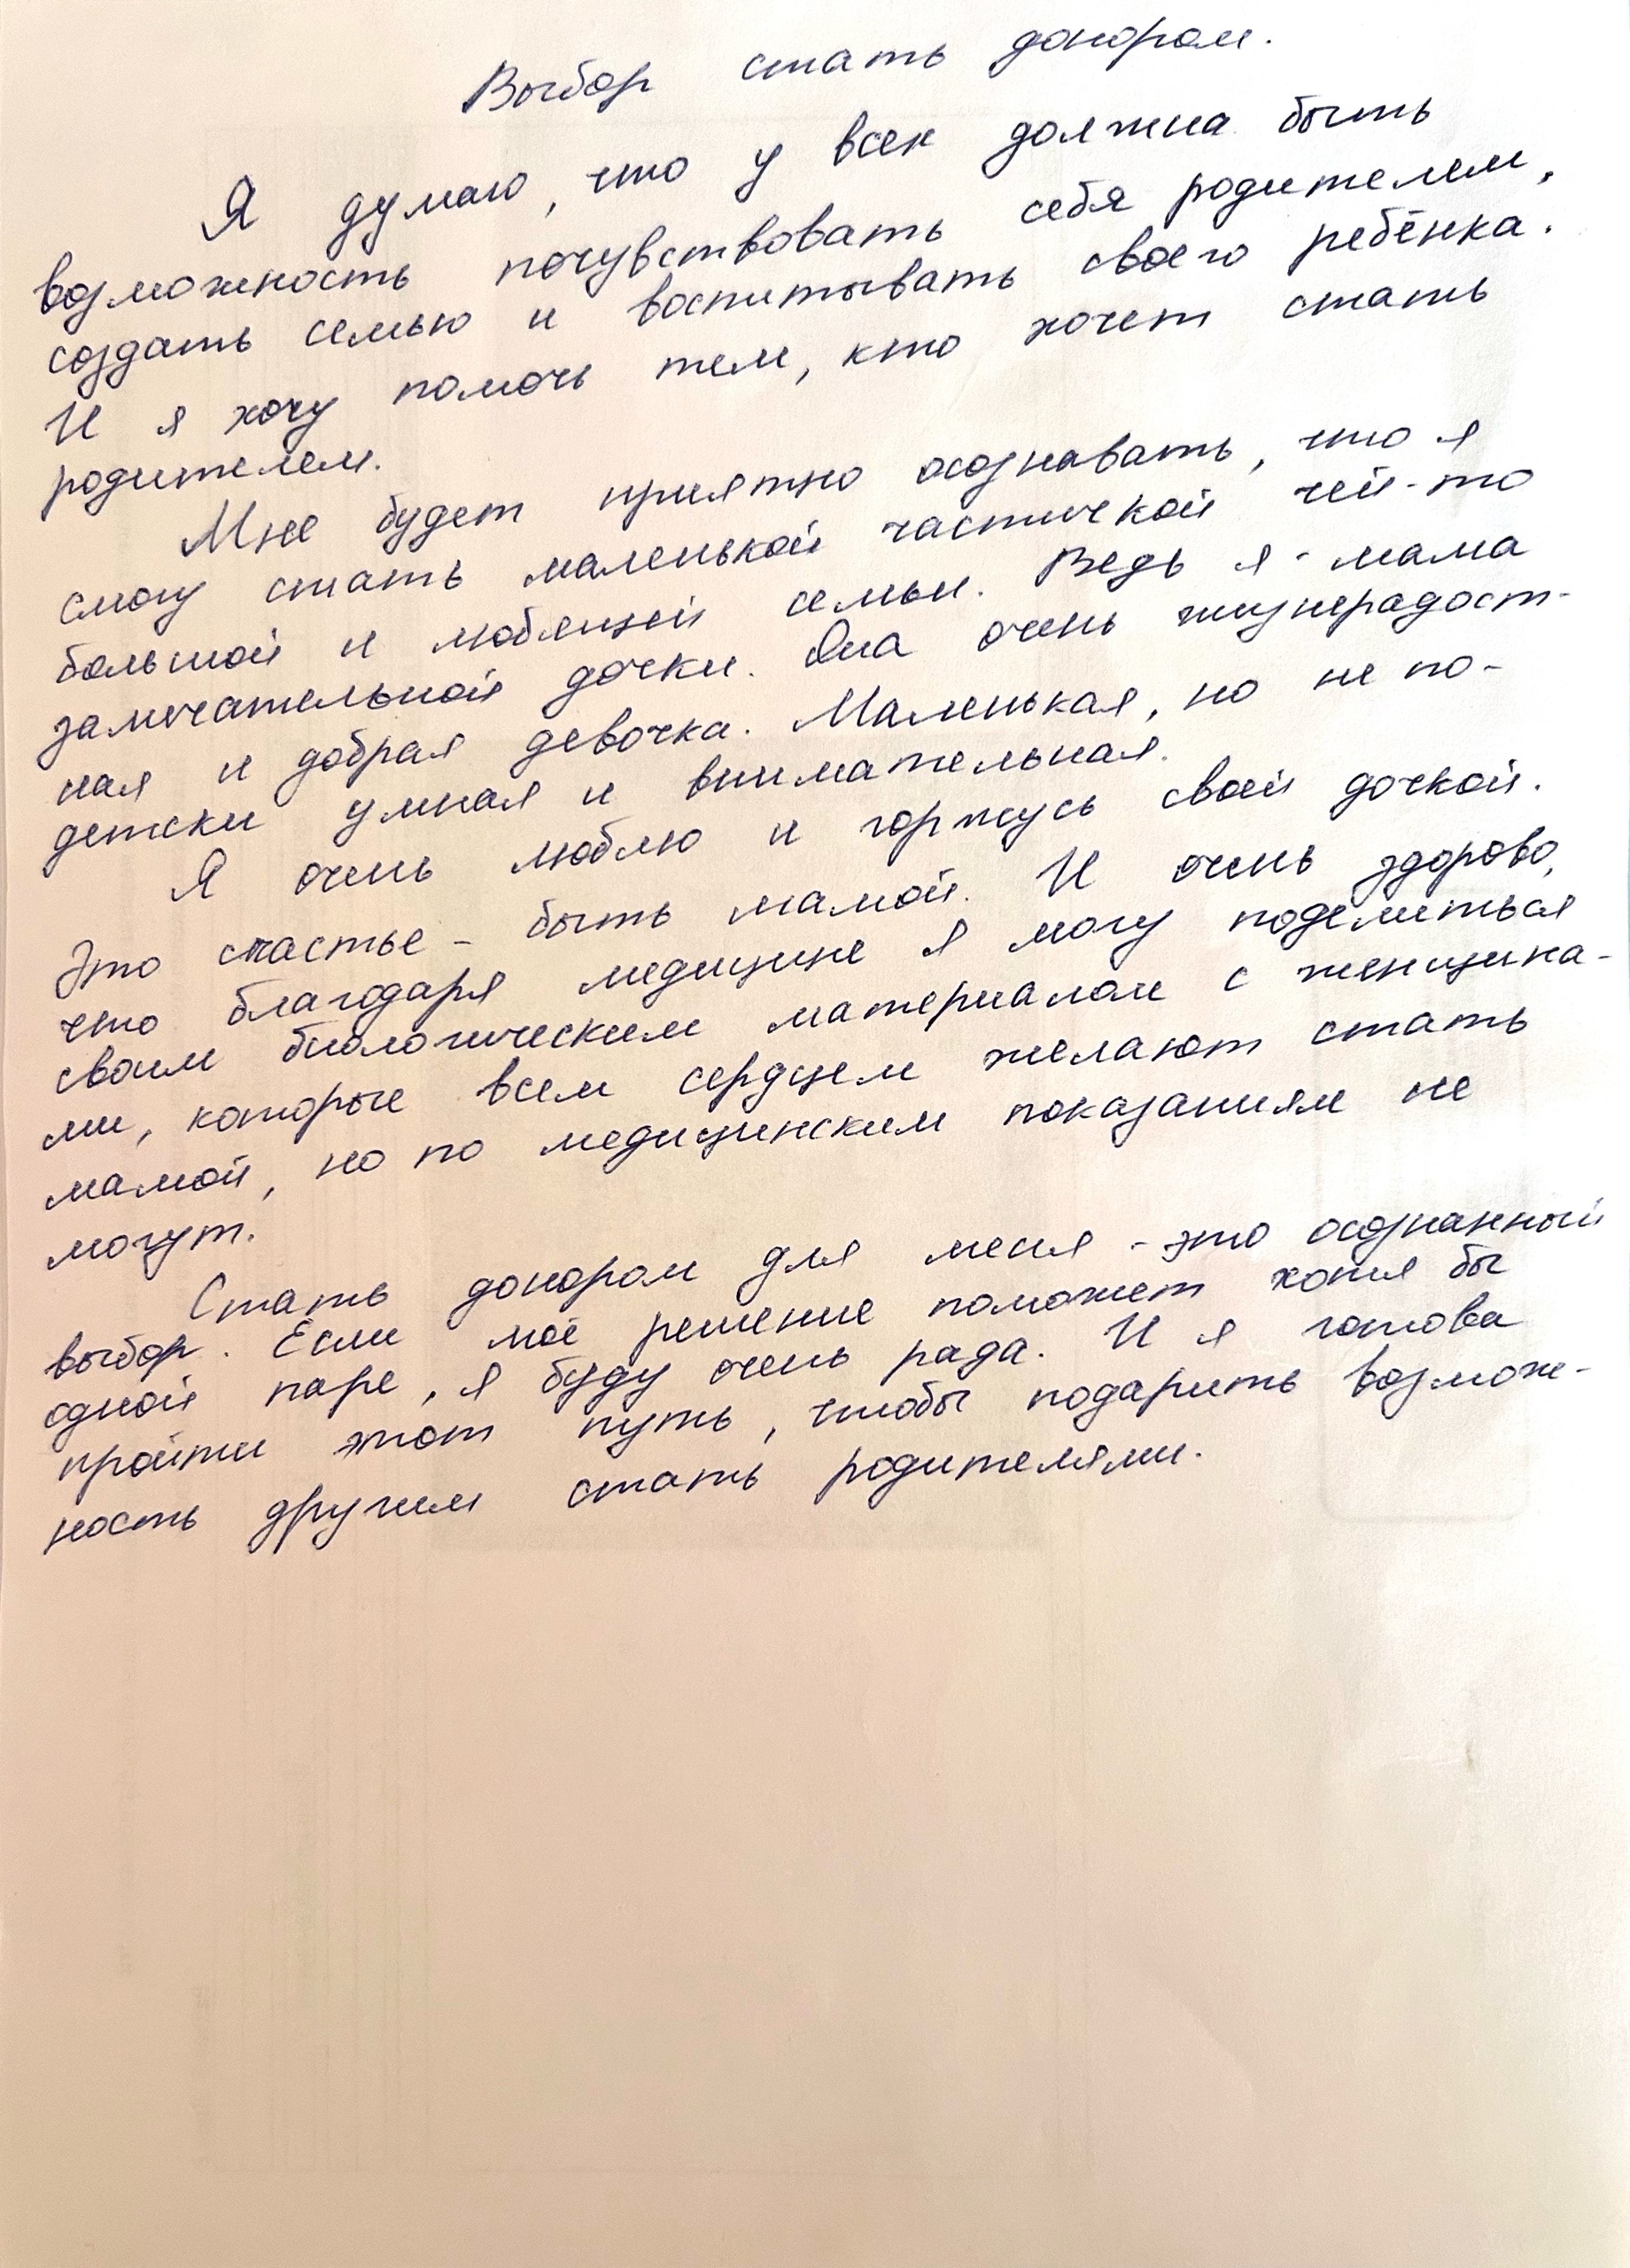 Выбор стать донором.
Я думаю, что у всех должна быть
возможность почувствовать себя родителем,
создать семью и воспитывать своего ребёнка.
И я хочу помочь тем, кто хочет стать
родителем.
Мне будет приятно осознавать, что я
смогу стать маленькой частичкой чей-то
большой и любящей семьи. Ведь я - мама
замечательной дочки. Она очень жизнерадост-
ная и добрая девочка. Маленькая, но не по-
детски умная и внимательная.
Я очень люблю и горжусь своей дочкой.
Это счастье - быть мамой. И очень здорово,
что благодаря медицине я могу поделиться
своим биологическим материалом с женщина-
ми, которые всем сердцем желают стать
мамой, но по медицинским показаниям не
могут.
Стать донором для меня - это осознанный
выбор. Если моё решение поможет хотя бы
одной паре, я буду очень рада. И я готова
пройти этот путь, чтобы подарить возмож-
ность другим стать родителями.